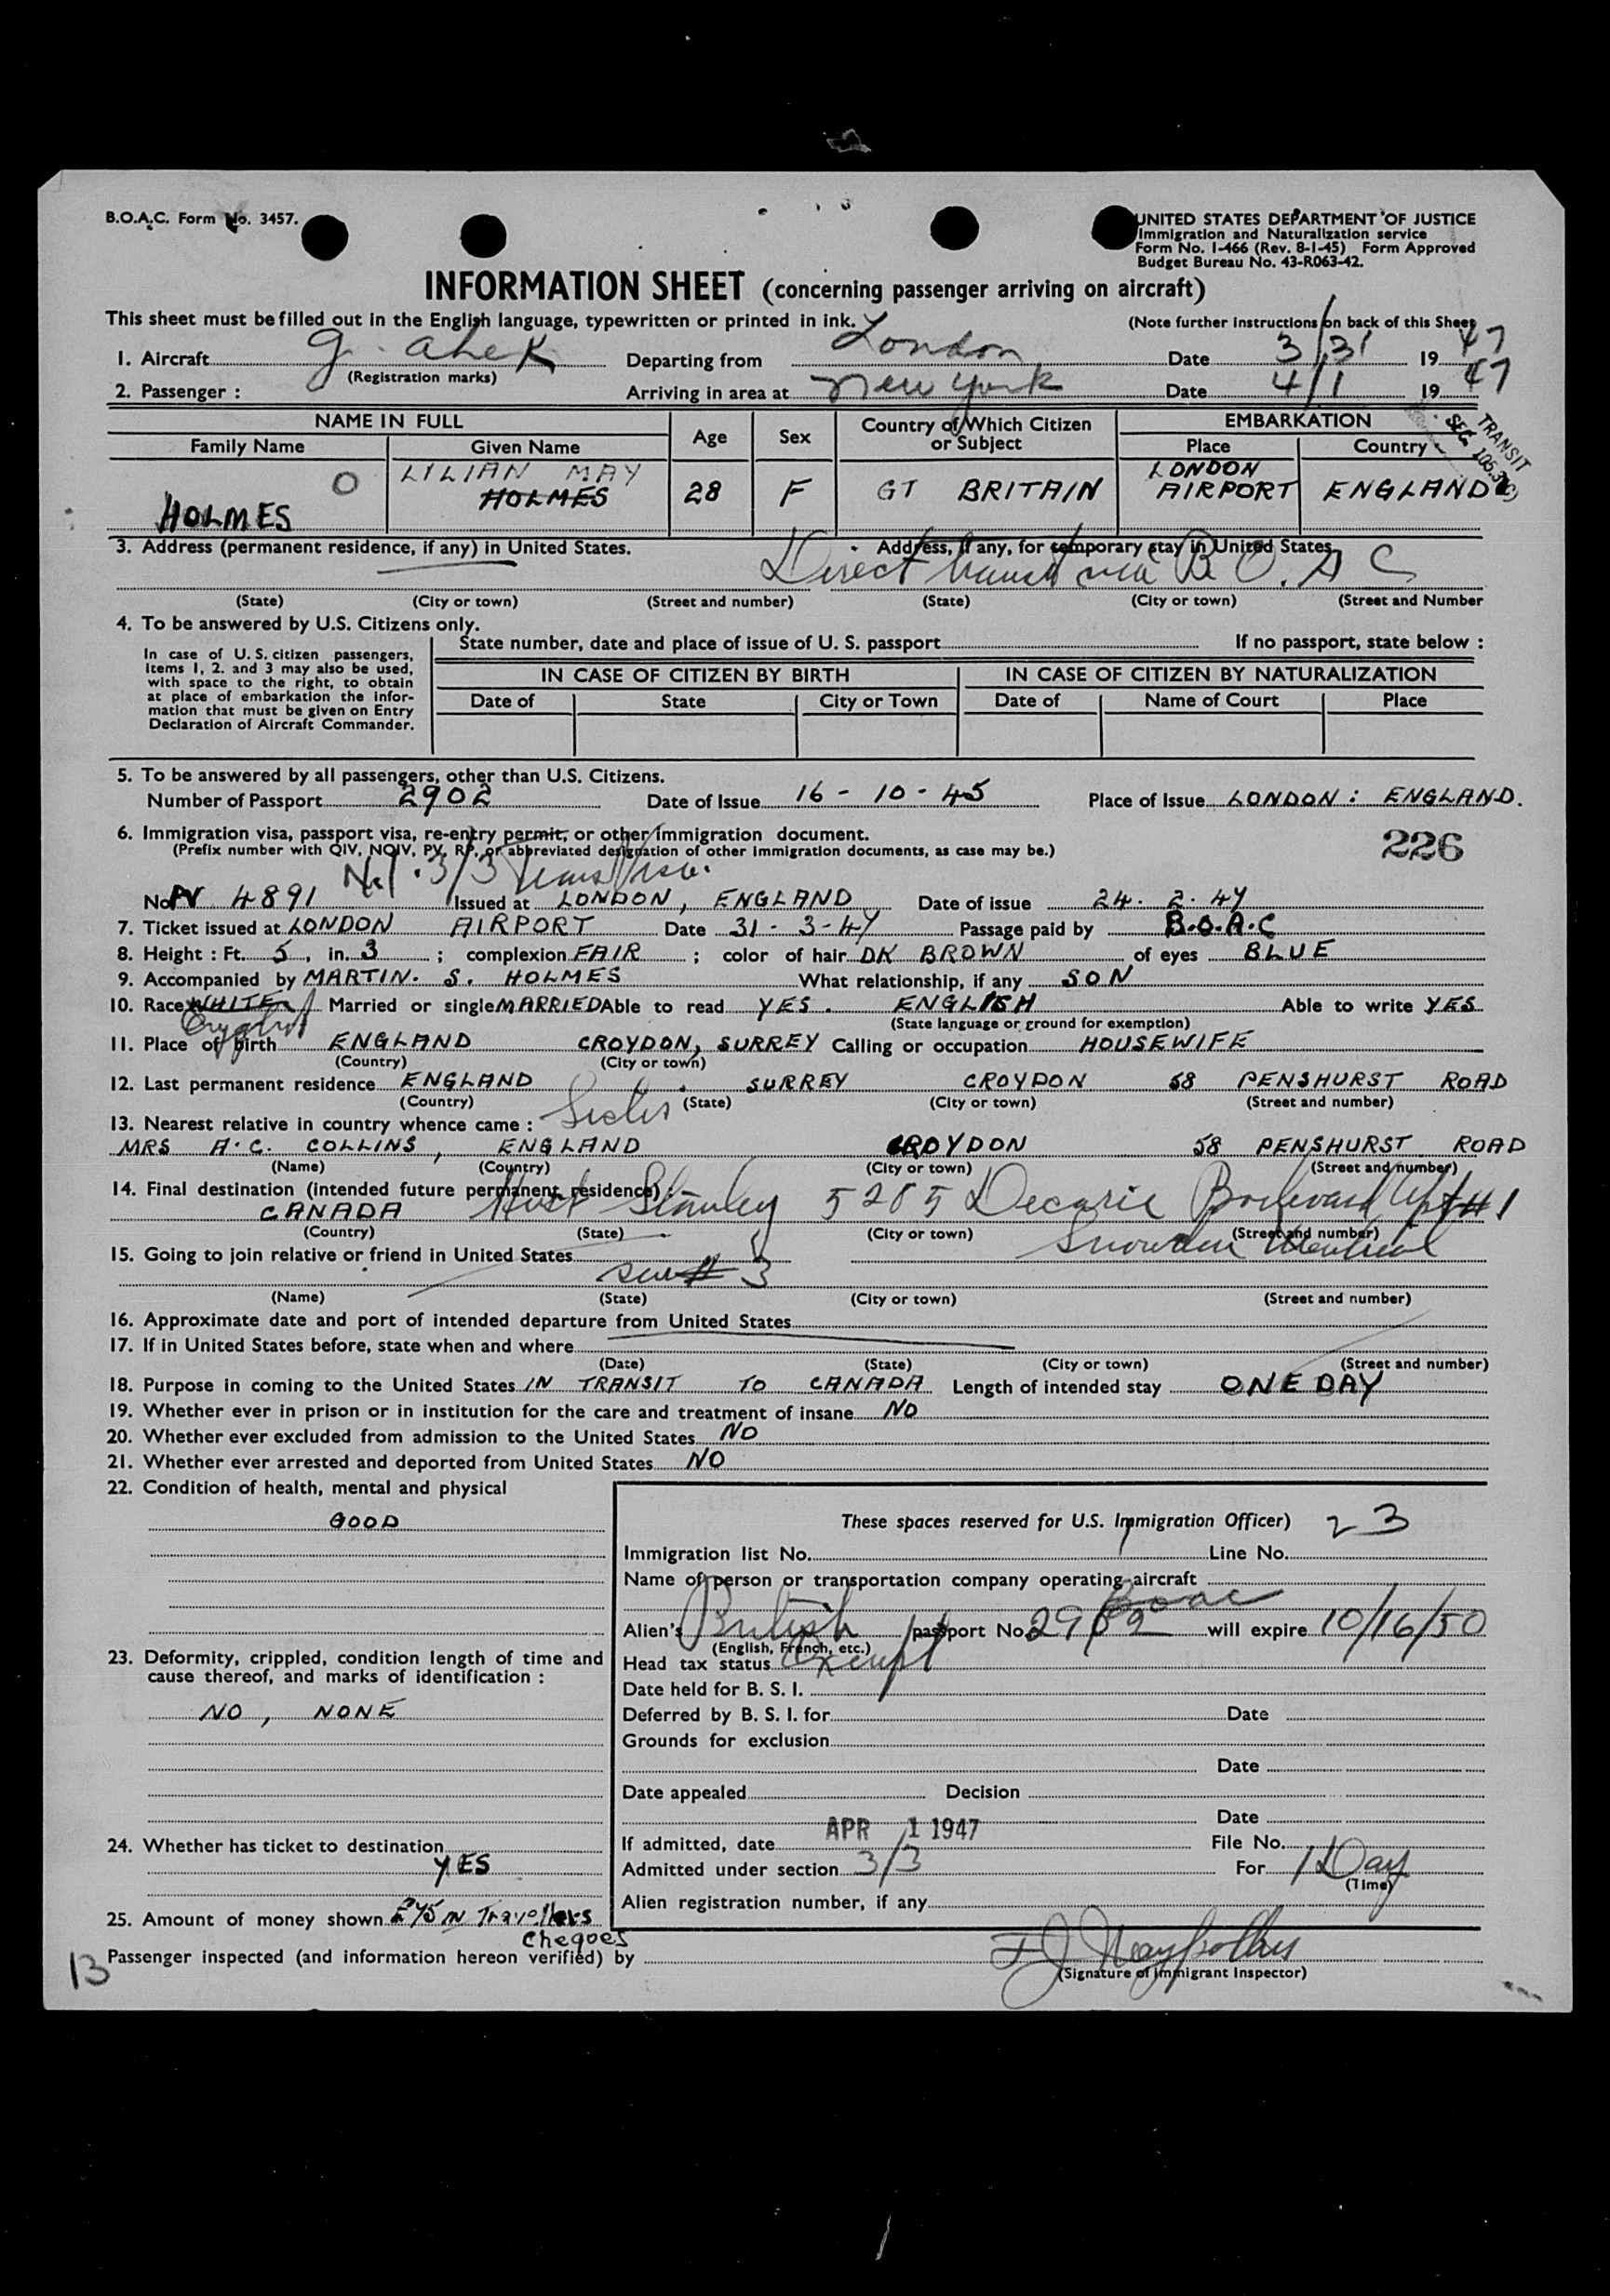 B.O.A.C. Form No. 3457.
UNITED STATES DEPARTMENT OF JUSTICE
Immigration and Naturalization service
Form No. I-466 (Rev. 8-1-45) Form Approved
Budget Bureau No. 43-R063-42.
INFORMATION SHEET (concerning passenger arriving on aircraft)
This sheet must be filled out in the English language, typewritten or printed in ink.
(Note further instructions on back of this Sheet
1. Aircraft G. ahek Departing from London Date 3/31 1947
(Registration marks)
2. Passenger : Arriving in area at New York Date 4/1 1947
TRANSIT
SEC.
NAME IN FULL Age Sex Country of Which Citizen or Subject EMBARKATION
Family Name Given Name Place Country
HOLMES O LILIAN MAY HOLMES 28 F GT BRITAIN LONDON AIRPORT ENGLAND
3. Address (permanent residence, if any) in United States. Address, if any, for temporary stay in United States
Direct transit via B.O.A.C
(State) (City or town) (Street and number) (State) (City or town) (Street and Number
4. To be answered by U.S. Citizens only.
State number, date and place of issue of U. S. passport If no passport, state below :
In case of U. S. citizen passengers,
items 1, 2. and 3 may also be used,
with space to the right, to obtain
at place of embarkation the infor-
mation that must be given on Entry
Declaration of Aircraft Commander.
IN CASE OF CITIZEN BY BIRTH IN CASE OF CITIZEN BY NATURALIZATION
Date of State City or Town Date of Name of Court Place
5. To be answered by all passengers, other than U.S. Citizens.
Number of Passport 2902 Date of Issue 16 - 10 - 45 Place of Issue LONDON : ENGLAND.
6. Immigration visa, passport visa, re-entry permit, or other immigration document.
226
(Prefix number with QIV, NQIV, PV, RP, or abbreviated designation of other immigration documents, as case may be.)
3/3 Visa.
No PV 4891 Issued at LONDON, ENGLAND Date of issue 24. 2. 47
7. Ticket issued at LONDON AIRPORT Date 31 - 3 - 47 Passage paid by B.O.A.C
8. Height : Ft. 5, in. 3 ; complexion FAIR ; color of hair DK BROWN of eyes BLUE
9. Accompanied by MARTIN. S. HOLMES What relationship, if any SON
10. Race WHITE Married or single MARRIED Able to read YES. ENGLISH Able to write YES
English
(State language or ground for exemption)
11. Place of birth ENGLAND CROYDON, SURREY Calling or occupation HOUSEWIFE
(Country) (City or town)
12. Last permanent residence ENGLAND SURREY CROYDON 58 PENSHURST ROAD
(Country) (State) (City or town) (Street and number)
13. Nearest relative in country whence came : Sister
MRS A.C. COLLINS, ENGLAND CROYDON 58 PENSHURST ROAD
(Name) (Country) (City or town) (Street and number)
14. Final destination (intended future permanent residence)
CANADA Stanley 5205 Decarie Boulevard Apt #1
(Country) (State) (City or town) (Street and number)
Snowdon Montreal
15. Going to join relative or friend in United States
see # 3
(Name) (State) (City or town) (Street and number)
16. Approximate date and port of intended departure from United States
17. If in United States before, state when and where
(Date) (State) (City or town) (Street and number)
18. Purpose in coming to the United States IN TRANSIT TO CANADA Length of intended stay ONE DAY
19. Whether ever in prison or in institution for the care and treatment of insane NO
20. Whether ever excluded from admission to the United States NO
21. Whether ever arrested and deported from United States NO
22. Condition of health, mental and physical
GOOD
23. Deformity, crippled, condition length of time and
cause thereof, and marks of identification :
NO, NONE
24. Whether has ticket to destination
YES
25. Amount of money shown £75 IN Travellers
Cheques
These spaces reserved for U.S. Immigration Officer) 23
Immigration list No. Line No.
Name of person or transportation company operating aircraft
Boac
Alien's British passport No 2902 will expire 10/16/50
(English, French, etc.)
Head tax status Exempt
Date held for B. S. I.
Deferred by B. S. I. for Date
Grounds for exclusion
Date
Date appealed Decision
Date
If admitted, date APR 1 1947 File No.
Admitted under section 3/3 For 1 Day
(Time)
Alien registration number, if any
13
Passenger inspected (and information hereon verified) by
(Signature of Immigrant Inspector)